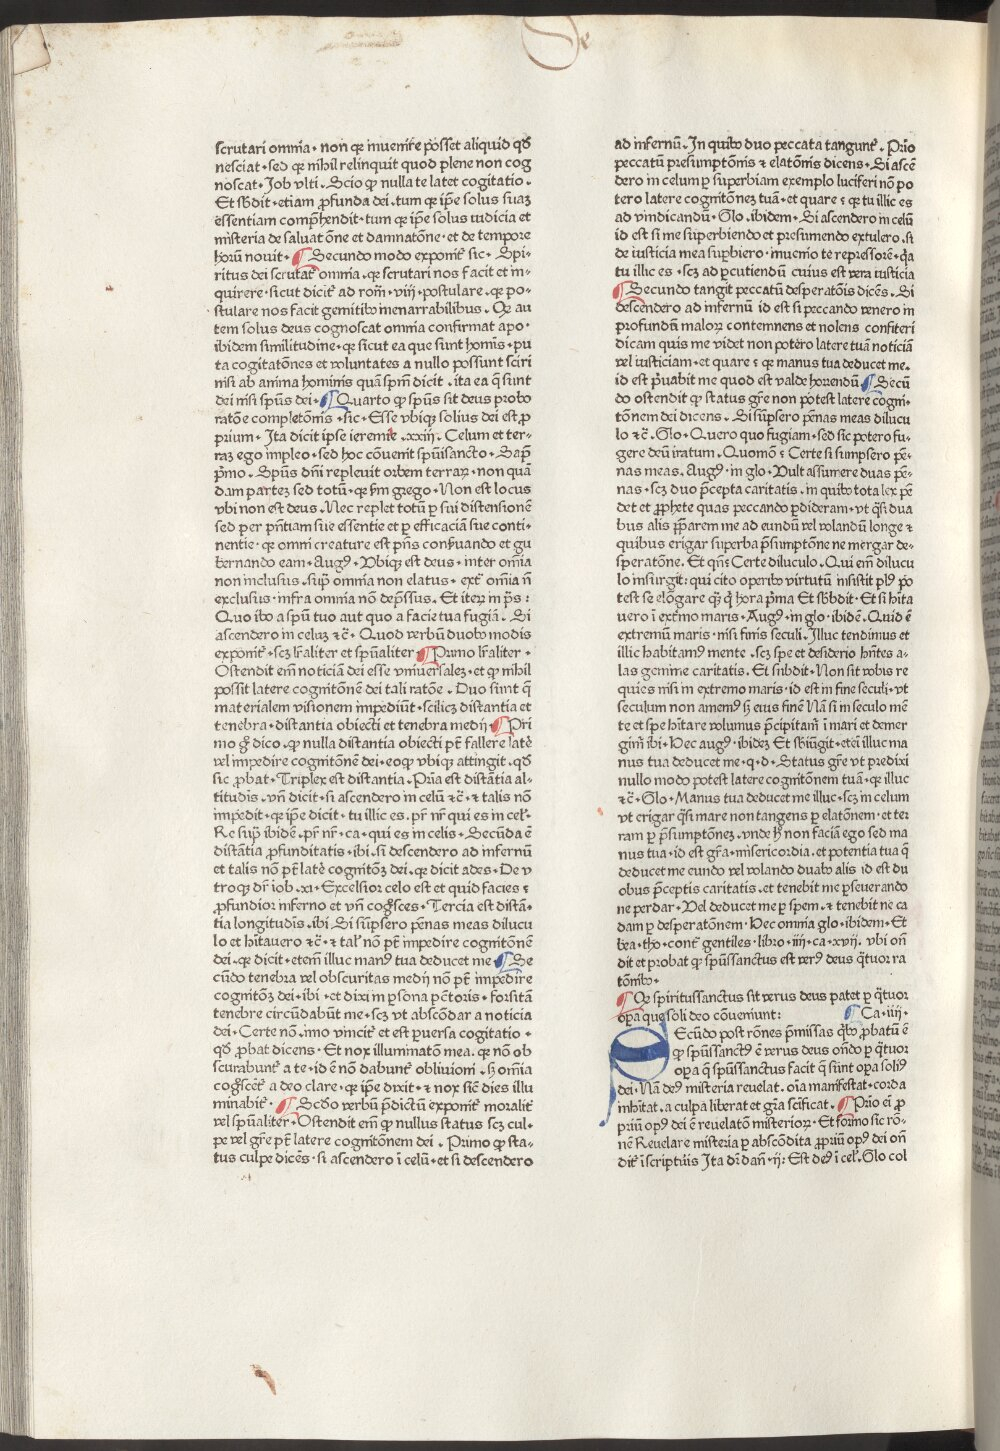 De
scrutari omnia · non q̄ inuenire posset aliquid qd̄
nesciat · sed q̄ nihil relinquit quod plene non cog
noscat · Job vlti . Scio q̄ nulla te latet cogitatio .
Et sb̄dit · etiam ꝓfunda dei . tum q̄ ip̄e solus suaꝫ
essentiam comp̄hendit · tum q̄ ip̄e solus iudicia et
misteria de saluatōne et damnatōne · et de tempore
horū nouit · ¶ Secundo modo exponit᷑ sic · Spi-
ritus dei scrutat᷑ omnia . q̄ scrutari nos facit et in-
quirere · sicut dicit᷑ ad rom̄ · viij · postulare . q̄ po-
stulare nos facit gemitibꝰ inenarrabilibus . Qꝫ au
tem solus deus cognoscat omnia confirmat apo ·
ibidem similitudine · q̄ sicut ea que sunt hoīs · pu
ta cogitatōnes et voluntates a nullo possunt sciri
nisi ab anima hominis quā spm̄ dicit . ita ea q̄ sunt
dei nisi spūs dei · ¶ Quarto ꝙ spūs sit deus probo
ratōe completōnis · sic · Esse vbiqꝫ solius dei est ꝓ
prium · Ita dicit ipse ieremie . xxiij . Celum et ter-
raꝫ ego impleo · sed hoc cōuenit spūisancto · Sap̄
pͥmo . Spūs dn̄i repleuit orbem terraꝝ · non quā
dam parteꝫ sed totū · q̄ ẜm grego · Non est locus
vbi non est deus . Nec replet totū ꝑ sui distensionē
sed per pn̄tiam sue essentie et ꝑ efficaciā sue conti-
nentie · q̄ omni creature est pn̄s conẜuando et gu
bernando eam · Augꝰ · Vbiqꝫ est deus · inter om̄ia
non inclusus . suꝑ omnia non elatus · ext᷑ om̄ia n̄
exclusus · infra omnia nō dep̄ssus . Et iteꝝ in p̄s :
Quo ibo a spū tuo aut quo a facie tua fugiā . Si
ascendero in celuꝫ ⁊c̄ · Quod verbū duobꝰ modis
exponit᷑ · scꝫ lr̄aliter et spūaliter ¶ Primo lr̄aliter ·
Ostendit em̄ noticiā dei esse vniuersaleꝫ · et ꝙ nihil
possit latere cognitōnē dei tali ratōe . Duo sunt q̄
materialem visionem impediūt · scilicꝫ distantia et
tenebra · distantia obiecti et tenebra medij ¶ Pri
mo g̊ dico . ꝙ nulla distantia obiecti pt̄ fallere latē
vel impedire cognitōnē dei · eoqꝫ vbiqꝫ attingit . qd̄
sic ꝓbat · Triplex est distantia . Prīa est distātia al-
titudīs . vn̄ dicit · si ascendero in celū ⁊c̄ · ⁊ talis nō
impedit · q̄ ip̄e dicit · tu illic es . pr̄ nr̄ qui es in cel᷑ ·
Re suꝑ ibidē . pr̄ nr̄ · ca · qui es in celis . Secūda ē
distātia ꝓfunditatis · ibi . si descendero ad infernū
et talis nō pt̄ latē cognitōꝫ dei . q̄ dicit ades . De v
troqꝫ dr̄ iob . xi · Excelsior celo est et quid facies :
ꝓfundior inferno et vn̄ cogn̄sces · Tercia est distā-
tia longitudīs . ibi . Si sūpsero pēnas meas dilucu
lo et hitauero ⁊c̄ . ⁊ tal᷑ nō pt̄ impedire cognitōnē
dei . q̄ dicit · etem̄ illuc manꝰ tua deducet me ¶ Se
cūdo tenebra vel obscuritas medij nō pt̄ impedire
cognitōꝫ dei · ibi · et dixi in ꝑsona pc̄toris · forsitā
tenebre circūdabūt me · scꝫ vt abscōdar a noticia
dei · Certe nō . imo vincit᷑ et est ꝑuersa cogitatio ·
qd̄ ꝓbat dicens · Et nox illuminatō mea . q̄ nō ob
scurabunt᷑ a te · id ē nō dabunt᷑ obliuioni . sꝫ om̄ia
cogn̄scēt᷑ a deo clare · q̄ ip̄e dixit · ⁊ nox sic̄ dies illu
minabit᷑ . ¶ Scd̄o verbū p̄dictū exponit᷑ moralit᷑
vel spūaliter · Ostendit em̄ ꝙ nullus status scꝫ cul-
pe vel gr̄e pt̄ latere cognitōnem dei . Primo ꝙ sta-
tus culpe dicēs · si ascendero ī celū · et si descendero
ad infernū . In quibꝰ duo peccata tangunt᷑ . Prīo
peccatū presumptōnis ⁊ elatōnis dicens . Si ascē
dero in celum ꝑ superbiam exemplo luciferi nō po
tero latere cognitōneꝫ tuā · et quare : q̄ tu illic es
ad vindicandū . Glo . ibidem . Si ascendero in celū
id est si me superbiendo et presumendo extulero . si
de iusticia mea suꝑbiero · inuenio te repressorē . q̄a
tu illic es · scꝫ ad ꝑcutiendū cuius est vera iusticia
¶ Secundo tangit peccatū desperatōis dicēs . Si
descendero ad infernū id est si peccando venero in
profundū maloꝝ contemnens et nolens confiteri
dicam quis me videt non potero latere tuā noticiā
vel iusticiam · et quare : q̄ manus tua deducet me .
id est pͥuabit me quod est valde horrendū ¶ Secū
do ostendit ꝙ status gr̄e non potest latere cogni-
tōnem dei dicens . Si sūpsero pēnas meas dilucu
lo ⁊c̄ . Glo . Quero quo fugiam · sed sic potero fu-
gere deū iratum . Quomō : Certe si sumpsero pē-
nas meas . Augꝰ in glo . Vult assumere duas pē-
nas · scꝫ duo p̄cepta caritatis . in quibꝰ tota lex pē
det et ꝓphete quas peccando ꝑdideram · vt q̄si dua
bus alis p̄parem me ad eundū vel volandū longe ⁊
quibus erigar superba p̄sumptōne ne mergar de-
speratōne . Et qn̄s Certe diluculo . Qui em̄ dilucu
lo insurgit : qui cito operibꝰ virtutū insistit plꝰ po
test se elōgare q̄ꝫ q̄ hora pͥma Et sb̄dit . Et si hita
uero ī extͥmo maris · Augꝰ · in glo · ibidē . Quid ē
extremū maris · nisi finis seculi . Illuc tendimus et
illic habitamꝰ mente . scꝫ spe et desiderio hn̄tes a-
las gemine caritatis . Et subdit . Non sit vobis re
quies nisi in extremo maris · id est in fine seculi · vt
seculum non amemꝰ sꝫ eius finē Nā si in seculo mē
te et spe hītare volumus p̄cipitam᷑ ī mari et demer
gim᷑ ibi . Hec augꝰ . ibideꝫ Et sbiūgit · eteī illuc ma
nus tua deducet me . q . d . Status gr̄e vt predixi
nullo modo potest latere cognitōnem tuā . q̄ illuc
⁊c̄ · Glo · Manus tua deducet me illuc · scꝫ in celum
vt erigar q̄si mare non tangens ꝑ elatōnem · et ter
ram ꝑ p̄sumptōneꝫ . vnde hͦ non faciā ego sed ma
nus tua · id est gr̄a · misericordia . et potentia tua q̄
deducet me eundo vel volando duabꝰ alis id est du
obus p̄ceptis caritatis . et tenebit me ꝑseuerando
ne perdar · Vel deducet me ꝑ spem . ⁊ tenebit ne ca
dam ꝑ desperatōnem . Hec omnia glo · ibidem · Et
bea · tho · cont᷑ gentiles · libro . iiij . ca . xvij . vbi on̄
dit et probat ꝙ spūssanctus est verꝰ deus q̄tuor ra
tōnibꝰ ·
¶ Qꝫ spiritussanctus sit verus deus patet ꝑ q̄tuor
oꝑa que soli deo cōueniunt : ¶ Ca . iij .
SEcūdo post rōnes p̄missas qͥbꝰ ꝓbatū ē
ꝙ spūssanctꝰ ē verus deus on̄do ꝑ q̄tuor
oꝑa q̄ spūssanctus facit q̄ sunt oꝑa soliꝰ
dei . Nā deꝰ misteria reuelat . oīa manifestat . corda
inhitat . a culpa liberat et gr̄a scīficat . ¶ Prīo eī ꝓ
priū opꝰ dei ē reuelatō misterioꝝ . Et formo sic rō-
nē Reuelare misteria ꝑ abscōdita ꝓpriū opꝰ dei on̄
dit᷑ ī scripturis Ita dr̄ dan̄ · ij : Est deꝰ ī cel᷑ . Glo col